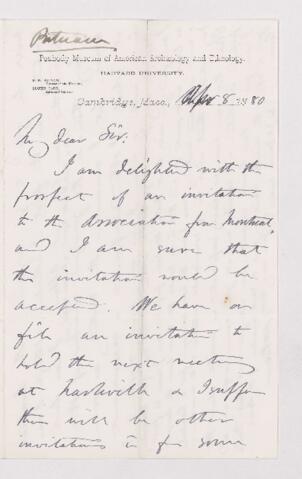 Putnam
Peabody Museum of American Archæology and Ethnology,
HARVARD UNIVERSITY.
Cambridge, Mass., Apr 8 1880
My dear Sir:
I am delighted with the
prospect of an invitation
to the Association from Montreal,
and I am sure that
the invitation would be
accepted. We have on
file an invitation to
hold the next meeting
at Nashville & I suppose
there will be other
invitations in from some